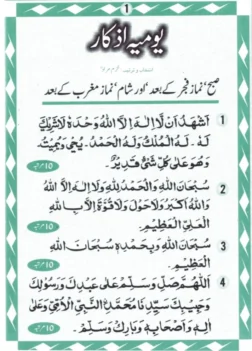 1
یومیہ اذکار
صبح 'نماز فجر کے بعد' اور شام 'نماز مغرب کے بعد
1 اَشْهَدُ اَنْ لَّا اِلٰهَ اِلَّا اللهُ وَحْدَهٗ لَا شَرِيْكَ
لَهٗ ۔ لَهُ الْمُلْكُ وَلَهُ الْحَمْدُ ۔ يُحْيِ وَيُمِيْتُ
وَهُوَ عَلٰى كُلِّ شَىْءٍ قَدِيْرٌ
2 سُبْحَانَ اللهِ وَالْحَمْدُ لِلّٰهِ وَلَا اِلٰهَ اِلَّا اللهُ
وَاللهُ اَكْبَرُ وَلَا حَوْلَ وَلَا قُوَّةَ اِلَّا بِاللهِ
الْعَلِيِّ الْعَظِيْمِ ۔ ۱۵ مرتبہ
3 سُبْحَانَ اللهِ وَبِحَمْدِهٖ سُبْحَانَ اللهِ
الْعَظِيْمِ ۔ ۱۵ مرتبہ
4 اَللّٰهُمَّ صَلِّ وَسَلِّمْ عَلٰى عَبْدِكَ وَرَسُوْلِكَ
وَحَبِيْبِكَ سَيِّدِنَا مُحَمَّدِ النَّبِيِّ الْاُمِّيِّ وَعَلٰى
اٰلِهٖ وَاَصْحَابِهٖ وَبَارِكْ وَسَلِّمْ ۔ ۱۵ مرتبہ